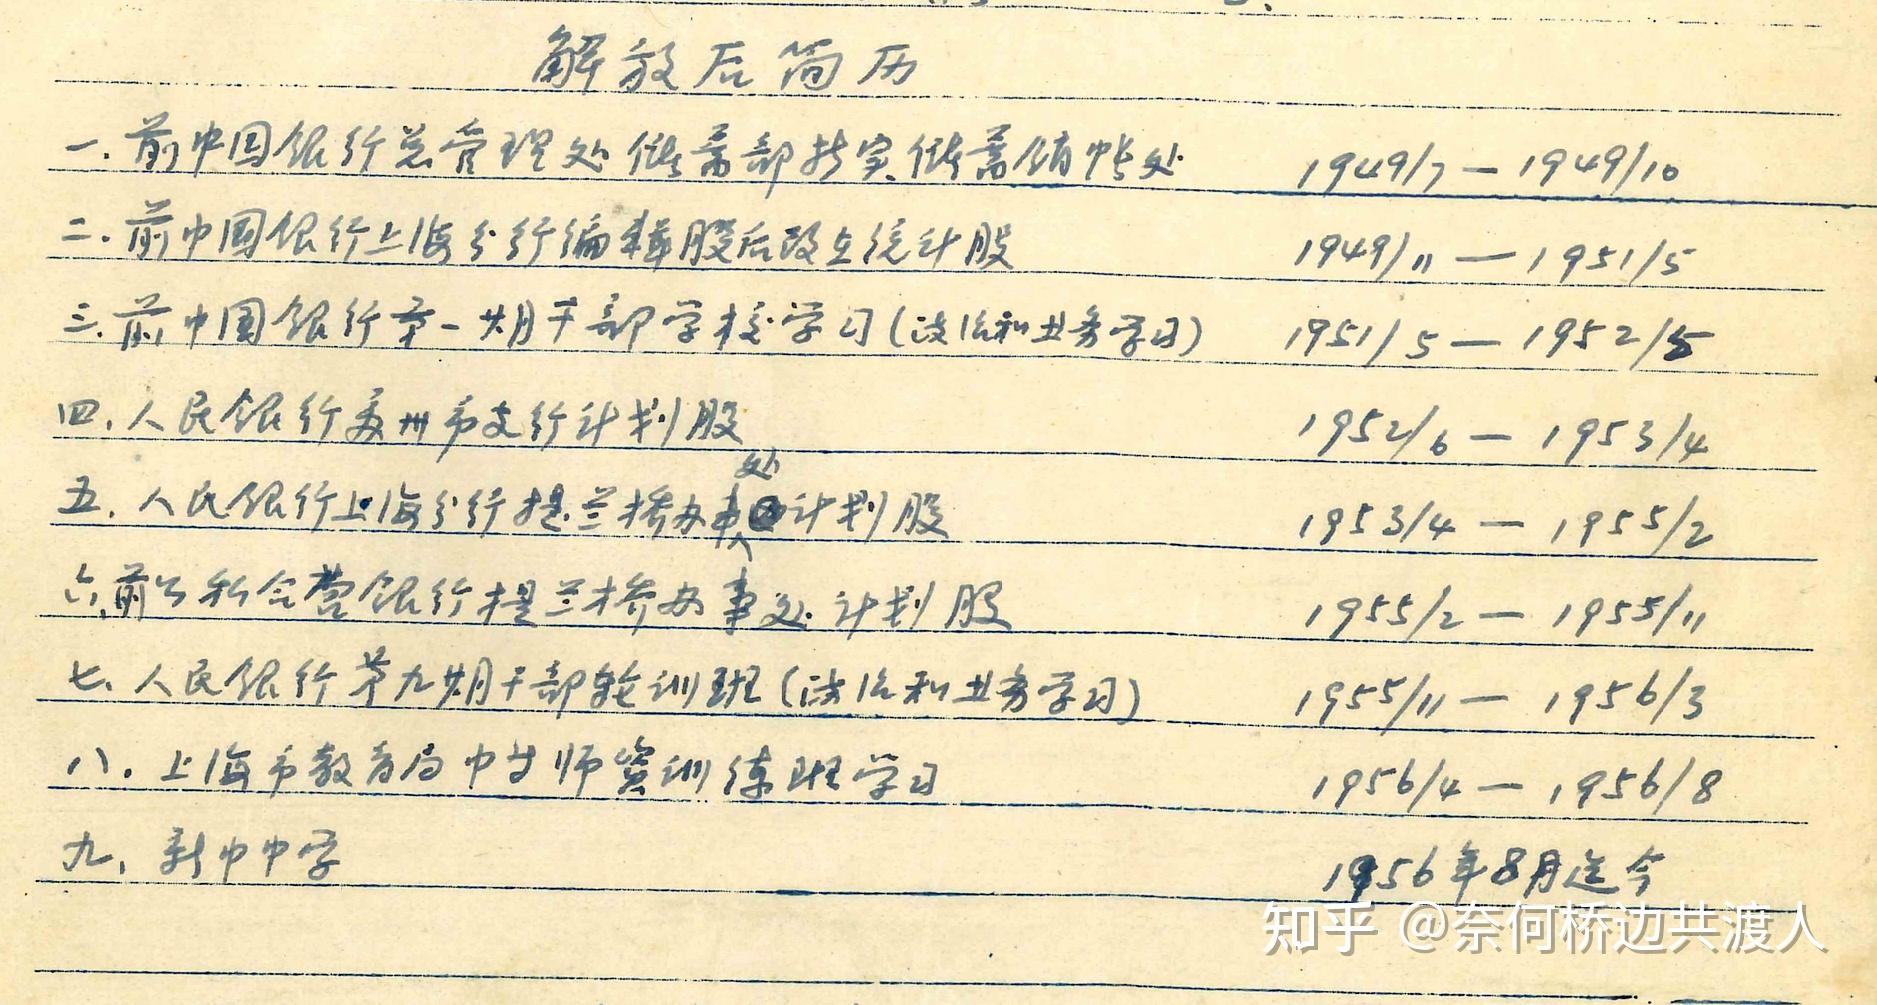 解放后简历
一.前中国银行总管理处储蓄部折实储蓄销帐处 1949/7 — 1949/10
二.前中国银行上海分行编辑股后改立统计股 1949/11 — 1951/5
三.前中国银行第一期干部学校学习(政治和业务学习) 1951/5 — 1952/5
四.人民银行苏州市支行计划股 1952/6 — 1953/4
五.人民银行上海分行提兰桥办事处计划股 1953/4 — 1955/2
六.前公私合营银行提兰桥办事处计划股 1955/2 — 1955/11
七.人民银行第九期干部轮训班(政治和业务学习) 1955/11 — 1956/3
八.上海市教育局中学师资训练班学习 1956/4 — 1956/8
九.新中中学 1956年8月迄今
知乎 @奈何桥边共渡人